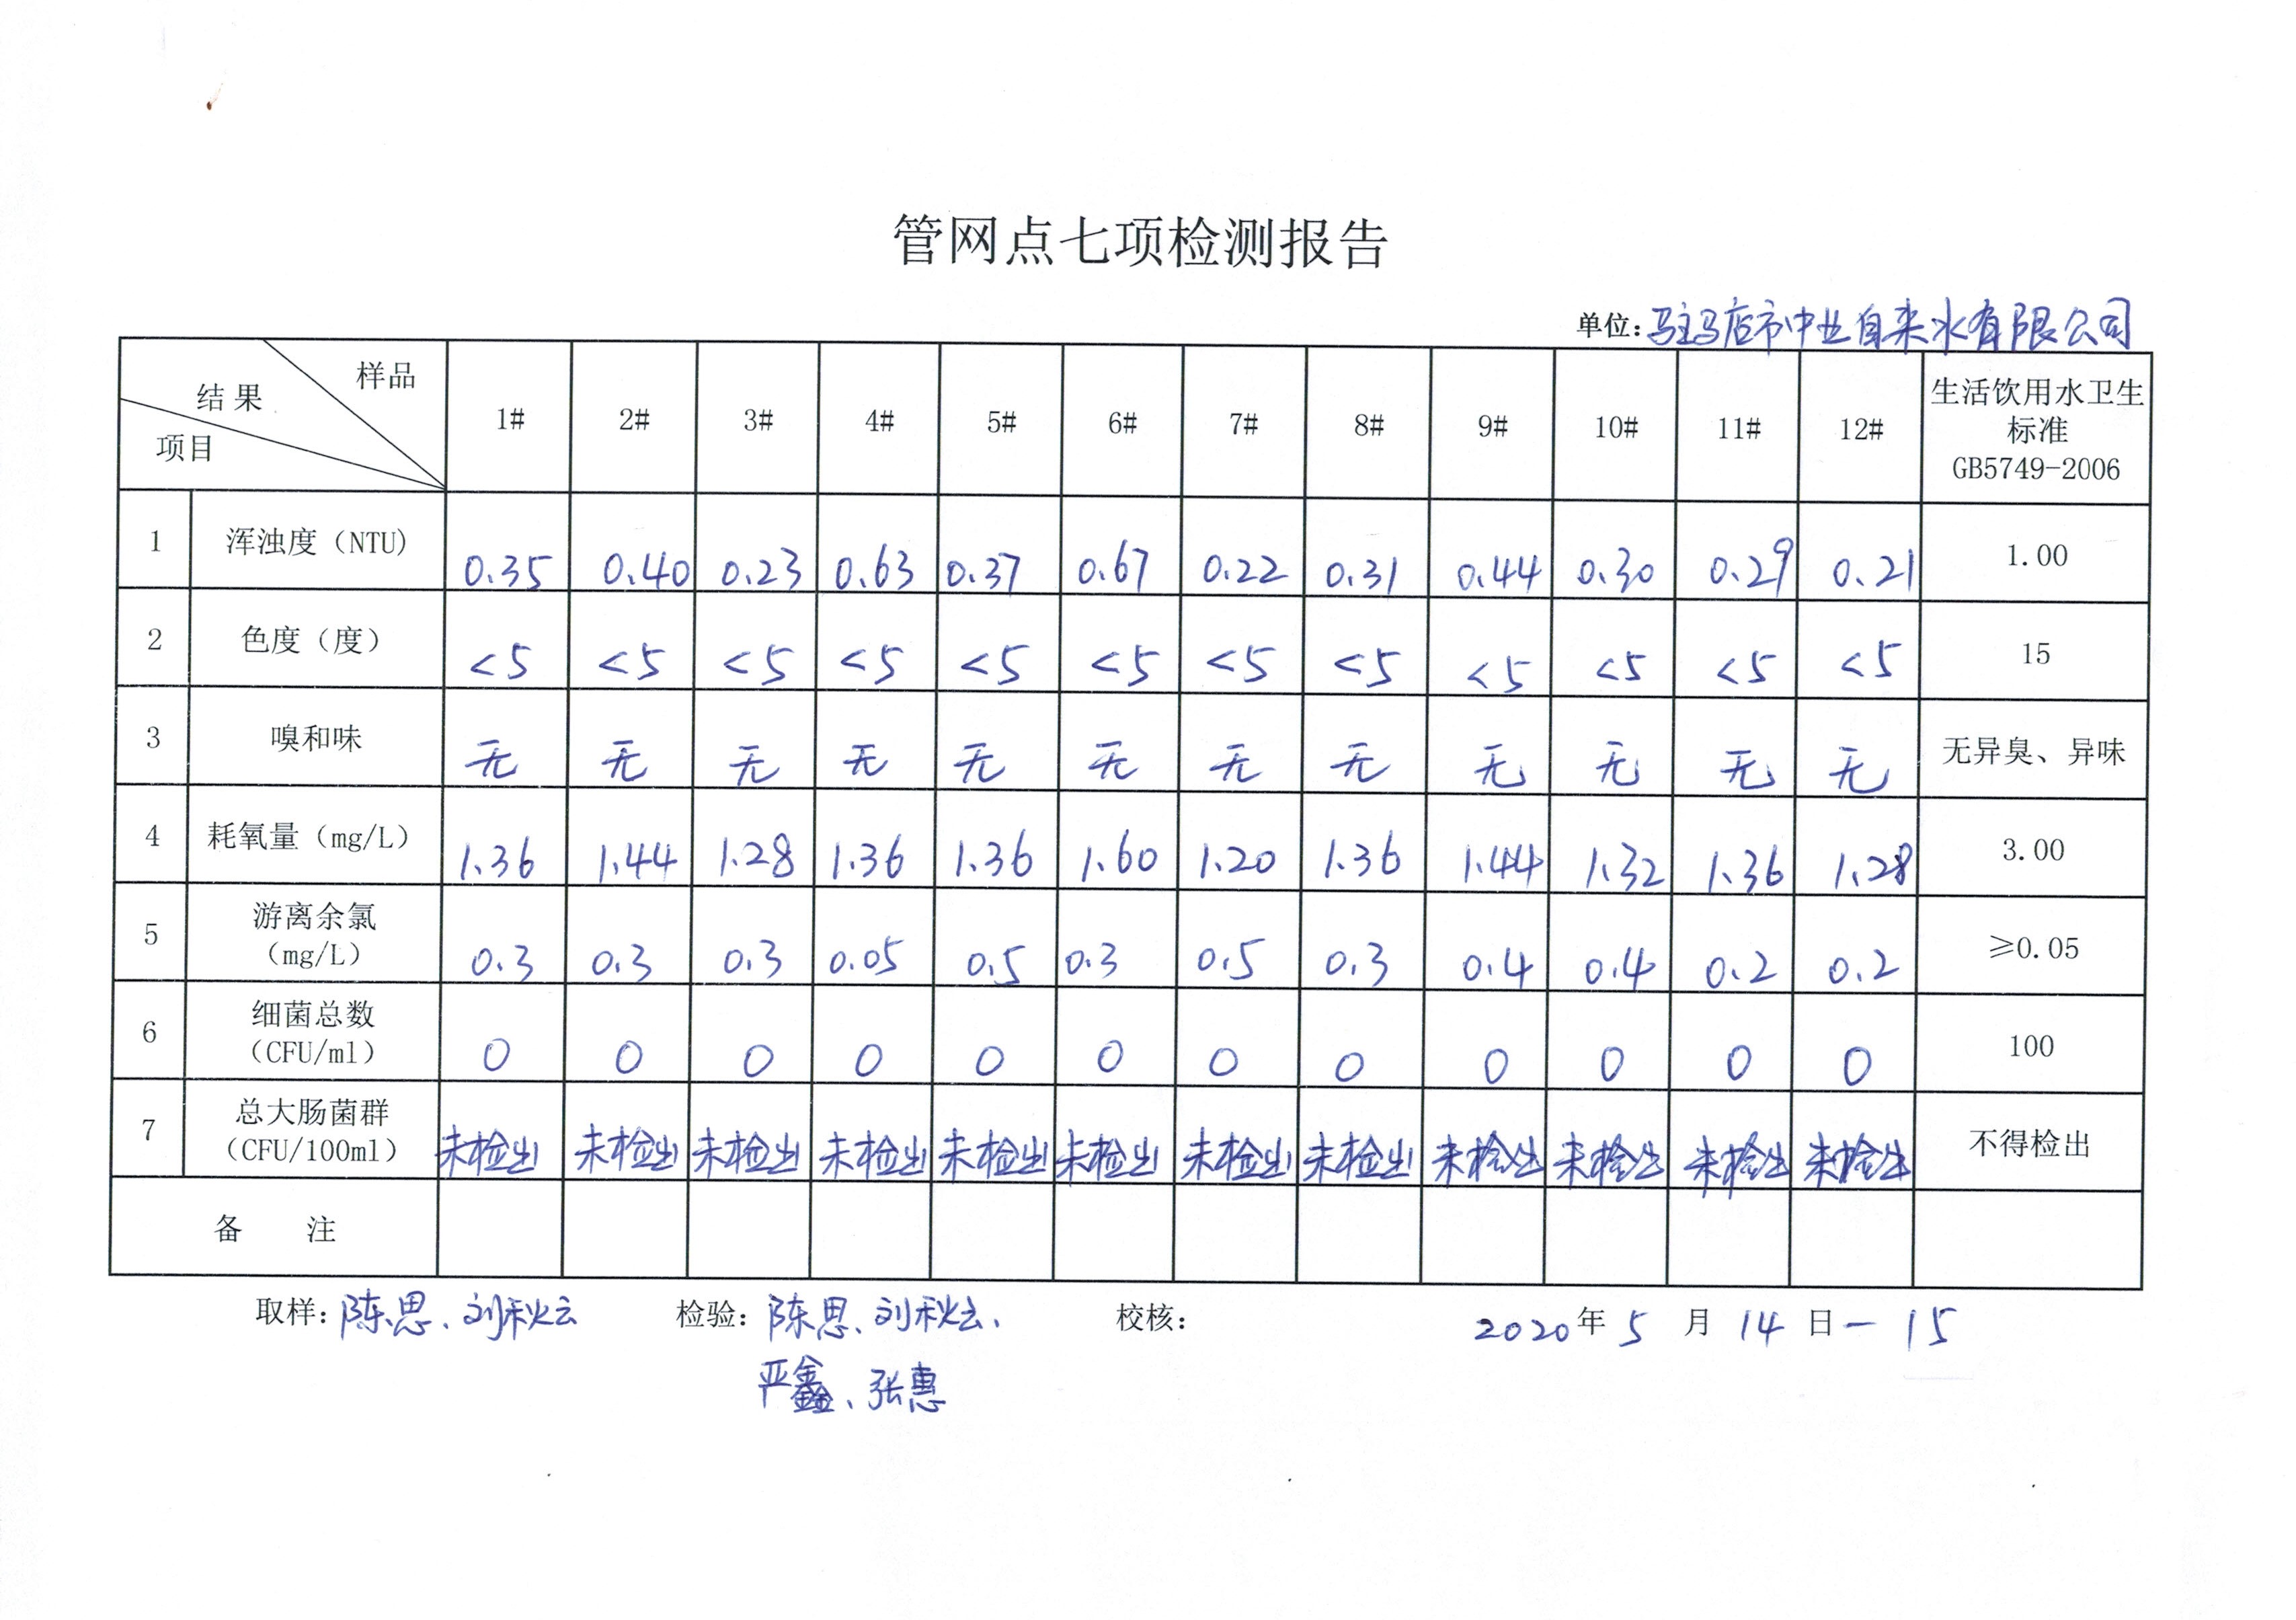 管网点七项检测报告
单位:驻马店市中业自来水有限公司
结果 样品 项目 1# 2# 3# 4# 5# 6# 7# 8# 9# 10# 11# 12# 生活饮用水卫生标准 GB5749-2006
1 浑浊度（NTU) 0.35 0.40 0.23 0.63 0.37 0.67 0.22 0.31 0.44 0.30 0.29 0.21 1.00
2 色度（度） <5 <5 <5 <5 <5 <5 <5 <5 <5 <5 <5 <5 15
3 嗅和味 无 无 无 无 无 无 无 无 无 无 无 无 无异臭、异味
4 耗氧量（mg/L） 1.36 1.44 1.28 1.36 1.36 1.60 1.20 1.36 1.44 1.32 1.36 1.28 3.00
5 游离余氯（mg/L） 0.3 0.3 0.3 0.05 0.5 0.3 0.5 0.3 0.4 0.4 0.2 0.2 ≥0.05
6 细菌总数（CFU/ml） 0 0 0 0 0 0 0 0 0 0 0 0 100
7 总大肠菌群（CFU/100ml） 未检出 未检出 未检出 未检出 未检出 未检出 未检出 未检出 未检出 未检出 未检出 未检出 不得检出
备 注
取样:陈思、刘秋云 检验:陈思、刘秋云、 校核: 2020年5月14日-15
严鑫、张惠